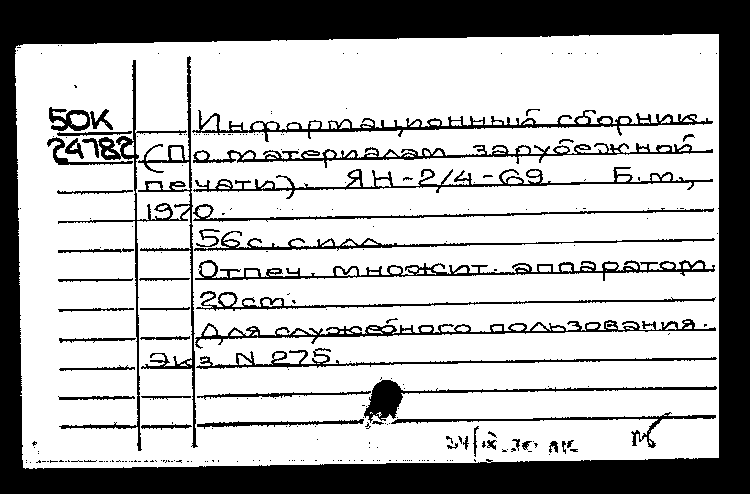 50К Информационный сборник.
24782 (По материалам зарубежной
печати). ЯН-2/4-69. Б.м.,
1970.
56с. с илл.
Отпеч. множит. аппаратом.
20cm.
Для служебного пользования.
Экз. N 275.